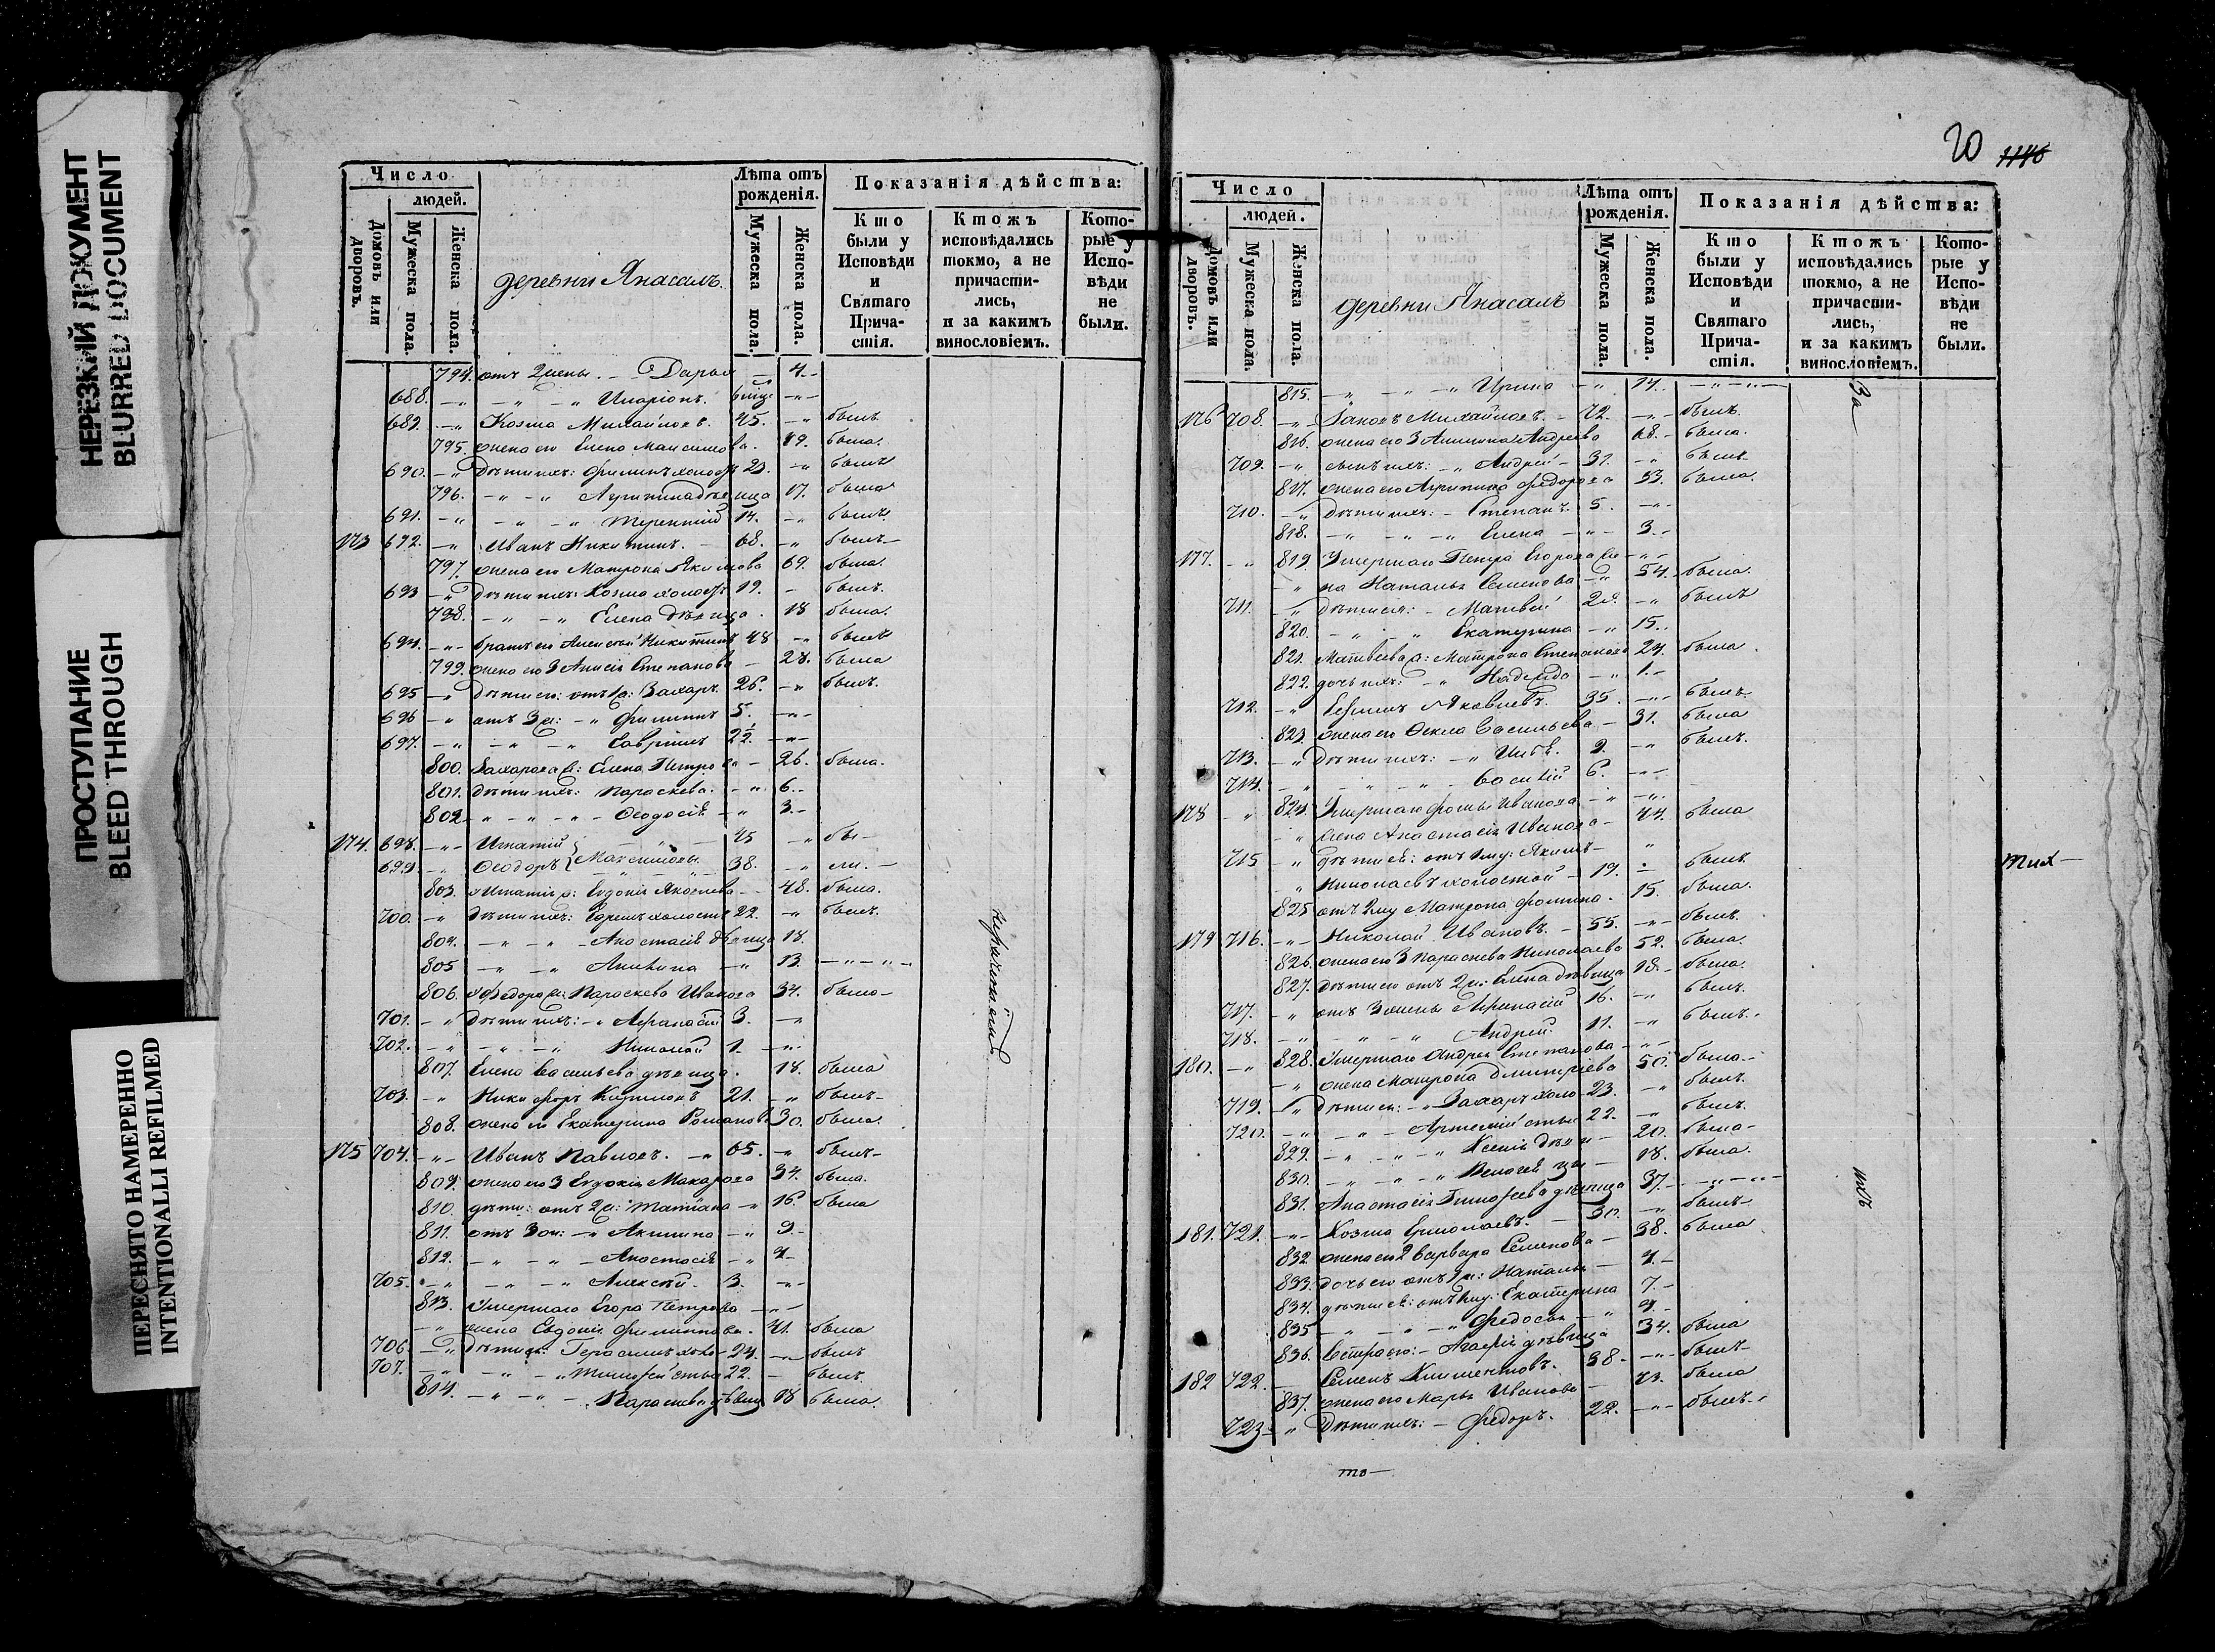 НЕРЕЗКИЙ ДОКУМЕНТ
BLURRED DOCUMENT
ПРОСТУПАНИЕ
BLEED THROUGH
ПЕРЕСНЯТО НАМЕРЕННО
INTENTIONALLI REFILMED
Число
людей.
Домовъ или дворовъ.
Мужеска пола.
Женска пола.
деревни Янасалъ.
Лѣта отъ рожденія.
Мужеска пола.
Женска пола.
Показанія дѣйства:
Кто были у Исповѣди и Святаго Причастія.
Ктожъ исповѣдались токмо, а не причастились, и за какимъ винословіемъ.
Которые у Исповѣди не были.
794. отъ 2 жены. – Дарья – 4. –
688. – " – " – " Иларіонъ.
689. – " Козма Михайловъ. 45. – " былъ
795. жена его Елена Максимова. 49. была.
690. – " дѣти ихъ: Филипъ холостъ 23. – " былъ
796. – " – " Агрипина дѣвица 17. была
691. – " – " – " Терентий 14. – " былъ
173 692. – " Иванъ Никитинъ. – 68. – " былъ –
797. жена его Матрона Якимова 69. была.
693 – " дѣти ихъ: Козма холостъ 19. – былъ.
798. – " – " Елена дѣвица. 18 была.
694. – " – братъ его Алексѣй Никитинъ 48 – " былъ
799. жена его 3 Анисія Степанова – 28. была
695 – " дѣти его: отъ 1ж: Захаръ. 26. – " былъ.
696 – " отъ 3ж: – " Филиппъ 5. – " –
697. – " – " – " Гавріилъ 22. – " –
800. Захарова ж: Елена Петрова – 26. была.
801. дѣти ихъ: Параскева. – " 6. –
802 – " – " – " – Ѳеодосія – " 3. –
174. 698. – " – Игнатій 45 – " бы –
699 – " Ѳеодоръ } Максимовы. 38. – " ли. –
803. Игнатія ж: Евдокія Яковлева – 48. была.
700. – " дѣти ихъ: Ефремъ холостъ 22. – " былъ.
804. – " – " – Анастасія дѣвица 18.
805 – " – " Акилина – " 13. – " – " –
806. Федора ж: Параскева Иванова 34. была –
701. – " дѣти ихъ: – " Афанасій 3. – "
702. – " – " – " Николай 1. – "
807. Елена Васильева дѣвица. 18. была
703. – " Никифоръ Кириловъ 21. – " былъ –
808. жена его Екатерина Романова 30. была.
175 704. – " – Иванъ Павловъ. – " 65. – " былъ –
809. жена его 3 Евдокія Макарова 34. была.
810. дѣти: отъ 2ж: Татіана – " 16. была
811. отъ 3ж: – " Акилина – " 9. –
812. – " – " – Анастасія – " 4 –
705. – " – " – " Алексѣй. 3. – " –
813. Умершаго Егора Петрова – " –
– " жена Евдокія Филиппова. 41. была
706. – " дѣти ея: Герасимъ холо – 24. – " былъ
707. – " – " – " Тимофѣй стые 22. – былъ.
814. – " – " – " Параскева дѣвица 18 была.
20 1146
Число
людей.
Домовъ или дворовъ.
Мужеска пола.
Женска пола.
деревни Янасалъ
Лѣта отъ рожденія.
Мужеска пола.
Женска пола.
Показанія дѣйства:
Кто были у Исповѣди и Святаго Причастія.
Ктожъ исповѣдались токмо, а не причастились, и за какимъ винословіемъ.
Которые у Исповѣди не были.
За
815. – " – " – " Ирина – " 14. – " – " –
176 708. – " – Михайловъ. – 72. – " – былъ.
816. жена его 3 Акилина Андреева 68. – была.
709. – " сынъ ихъ: – " Андрей – 31. – " былъ
817. жена его Агрипина Федорова 33. была.
710. – " дѣти ихъ: – Степанъ 5. – " –
818. – " – " – " Елена – " – 3. –
177. – " 819. Умершаго Петра Егорова же – " –
– " на Наталья Семенова – " 54. была.
711. – " дѣти ея: – Матвей 28. – " былъ
820. – " – " Екатерина – " 15. –
821. Матвеева ж: Матрона Степанова 24. была.
822. дочь ихъ: – " Надежда – " 1. –
712. – " Яковлевъ. 35. – " – былъ
823. жена его Ѳекла Васильева – 31. была
713. – " дѣти ихъ: – " 9. – " былъ.
714. – " – " – " – Василій 6. – " –
178 – " 824. Умершаго Фомы Иванова – " – "
– " жена Анастасія Иванова – 44. была
715 – " дѣти ея: отъ 1му: Якимъ – "
– " Николаевъ холостой – 19. – былъ.
825 отъ 2му Матрона Фомина. 15. была.
179 716. – " – Николай Ивановъ. – 55. – " – былъ.
826. жена его 3 Параскева Николаева 52. была.
827. дѣти его отъ 2ж: Елена дѣвица 18. – была.
717. – " отъ 3 жены Афанасій 16. – " былъ.
718. – " – " – " Андрей. 11. – " былъ.
180. – " 828. Умершаго Андрея Степанова – " –
– " жена Матрона Дмитріева 50. была. –
719. – " дѣти ея: – " Захаръ холо – 23. – " былъ.
720. – " – " – Артемий стые 22. – " былъ.
829. – " – " – " Ксенія дѣви – 20. была –
830. – " – " – " Пелагея цы – 18. была.
831. Анастасія Тимофеева дѣвица 37. – " – " –
181. 721. – " – Козма Ермолаевъ. – 30. – " былъ –
832. жена его 2 Варвара Семенова – 38. была
833. дочь его отъ 1ж: Наталья – 4. –
834. дѣти ея: отъ 1му: Екатерина 7. –
835 – " – " – " Федосья – " 4. –
836. Сестра его: – Агафія дѣвица 34. была
182 722. – Семенъ Климентовъ. 38 – – " – былъ –
837. жена его Марья Иванова – 43. была
723 – " дѣти ихъ: – Федоръ. 22. – " – былъ. –
тих –
нхъ
то –